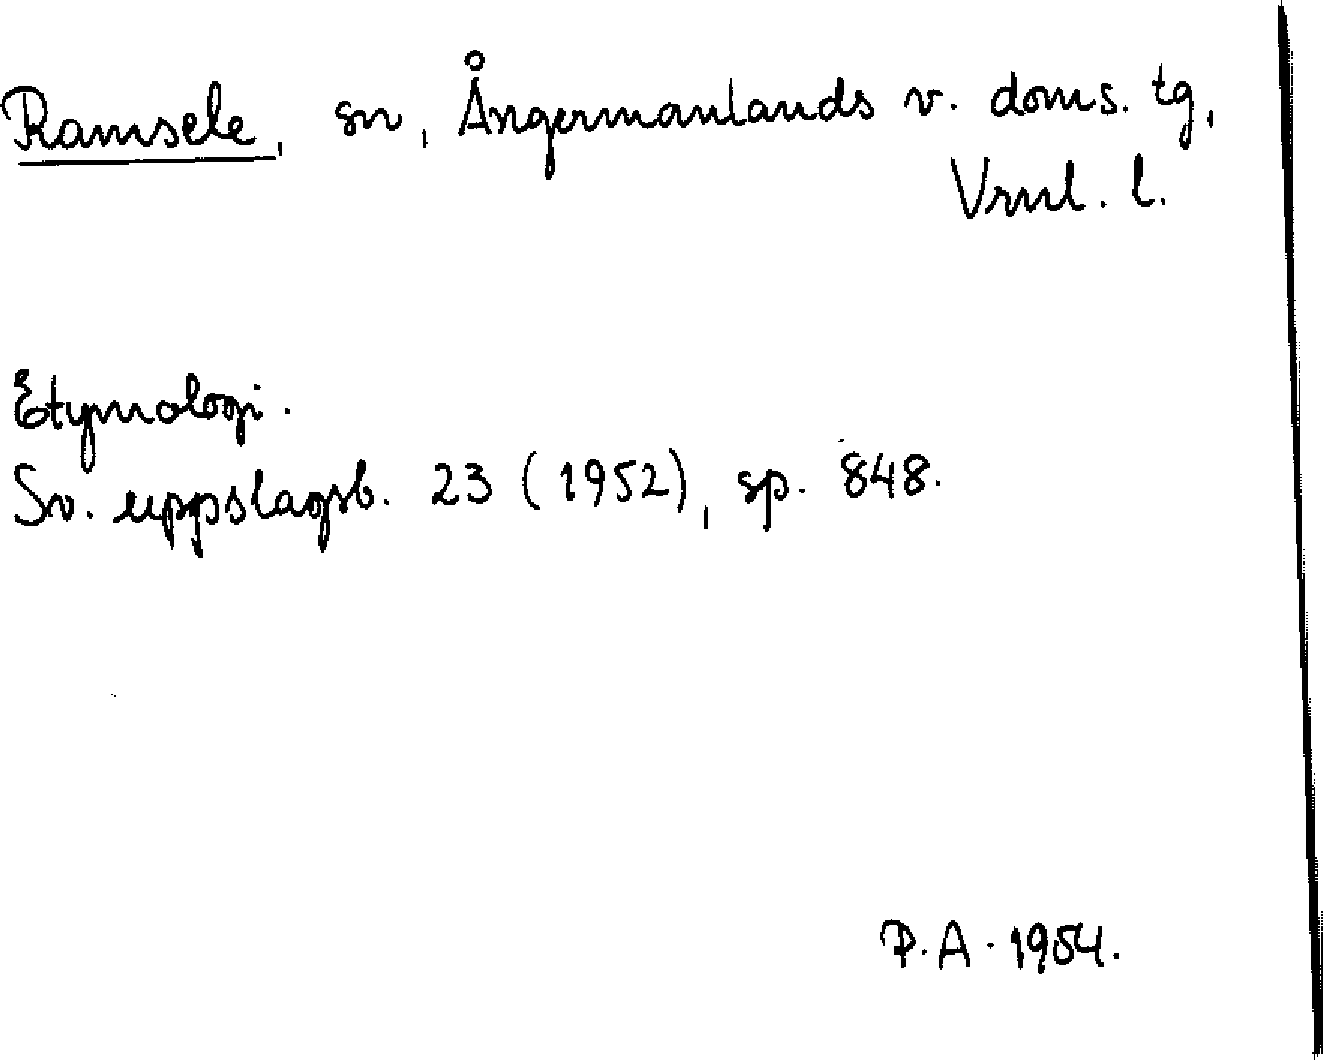 Ramsele, sn, Ångermanlands v. doms. tg,
Vrnl. l.
Etymologi.
Sv. uppslagsb. 23 (1952), sp. 848.
P.A. 1954.